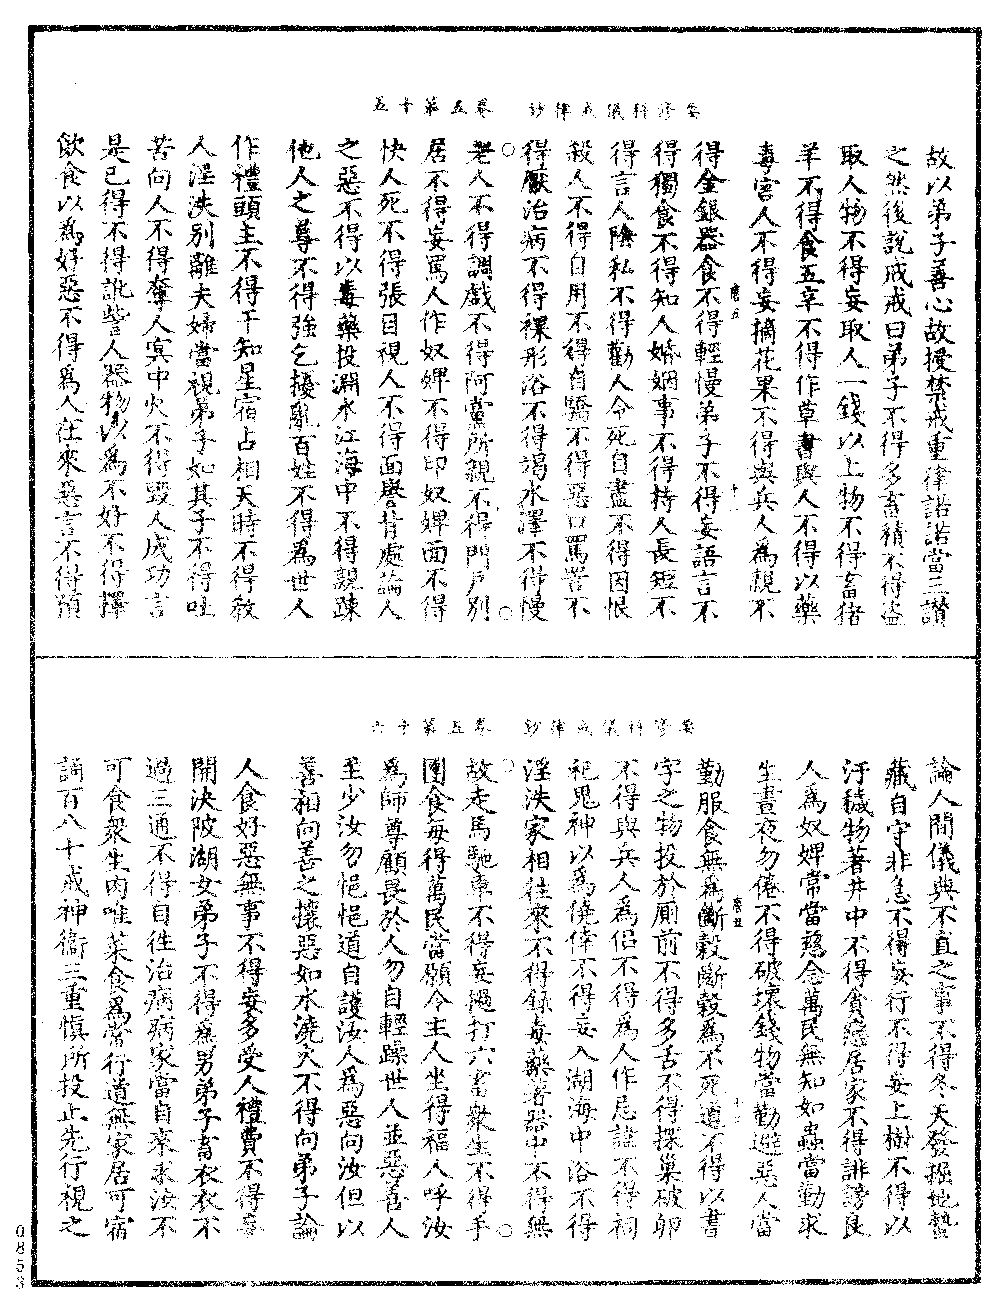 要修科儀戒律鈔　卷五第十五
故以弟子善心故授禁戒重律諾諾當三讃
之然後說戒戒曰弟子不得多畜積不得盜
取人物不得妄取人一錢以上物不得畜猪
羊不得食五辛不得作草書與人不得以藥
毒害人不得妄摘花果不得與兵人為親不
得金銀器食不得輕慢弟子不得妄語言不
得獨食不得知人婚姻事不得持人長短不
得言人陰私不得勸人令死自盡不得因恨
殺人不得自用不得自驕不得惡口罵詈不
得厭治病不得裸形浴不得竭水澤不得慢
老人不得調戲不得阿黨所親不得門戶別
居不得妄罵人作奴婢不得印奴婢面不得
快人死不得張目視人不得面譽背處論人
之惡不得以毒藥投淵水江海中不得親踈
他人之尊不得強乞擾亂百姓不得為世人
作禮頭主不得干知星宿占相天時不得教
人淫泆別離夫婦當視弟子如其子不得吐
苦向人不得奪人寞中火不得毀人成功言
是已得不得訿訾人器物以為不好不得擇
飲食以為好惡不得為人在來惡言不得預
要修科儀戒律鈔　卷五第十六
論人間儀與不直之事不得冬天發掘地蟄
藏自守非急不得妄行不得妄上樹不得以
汙穢物著井中不得貪戀居家不得誹謗良
人為奴婢常當慈念萬民無知如蟲當勤求
生晝夜勿倦不得破壞錢物當勤避惡人當
勤服食無為斷穀斷穀為不死道不得以書
字之物投於廁前不得多舌不得探巢破卵
不得與兵人為侶不得為人作忌諱不得祠
祀鬼神以為僥倖不得妄入湖海中浴不得
淫泆家相往來不得錄毒藥著器中不得無
故走馬馳車不得妄撾打六畜衆生不得手
團食每得萬民當願令主人坐得福人呼汝
為師尊顧畏於人勿自輕躁世人並惡善人
至少汝勿悒悒道自護汝人為惡向汝但以
善相向善之攘惡如水澆火不得向弟子論
人食好惡無事不得妄多受人禮費不得妄
開決陂湖女弟子不得為男弟子畜衣衣不
過三通不得自往治病病家當自來求汝不
可食衆生肉唯菜食為常行道無家居可宿
誦百八十戒神衛三重慎所投止先行視之
0853